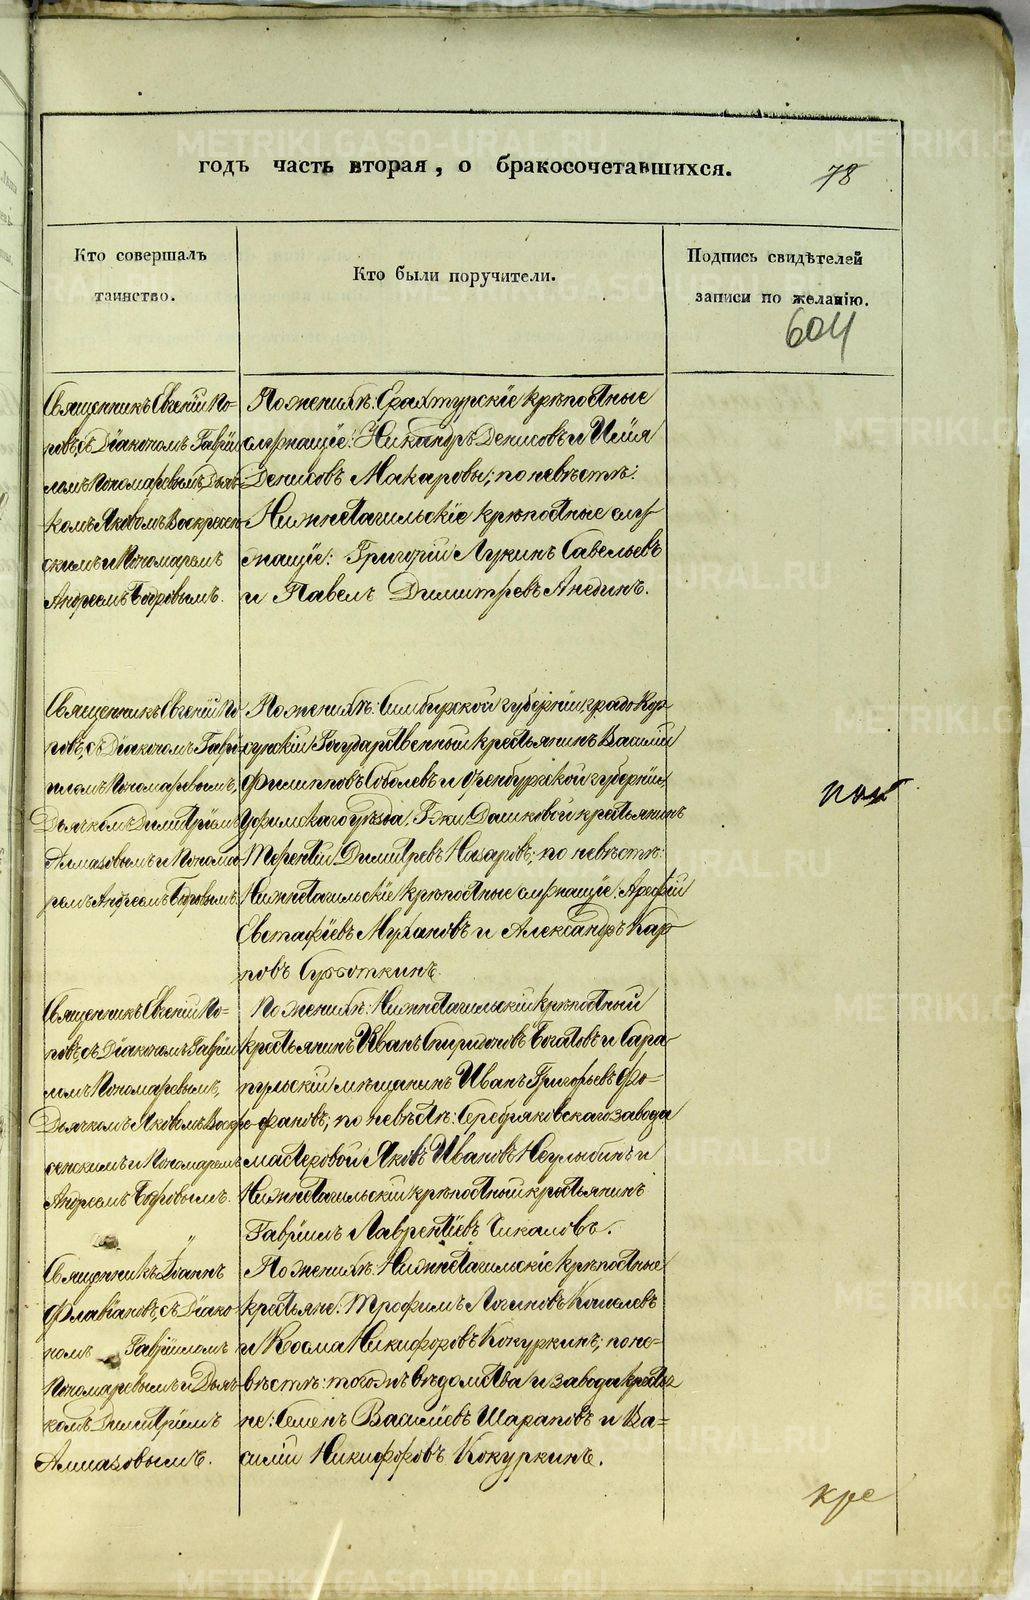 годъ часть вторая, о бракосочетавшихся.
78
Кто совершалъ
таинство.
Кто были поручители.
Подпись свидѣтелей
записи по желанію.
604
Священникъ Евгеній По-
повъ, съ Діакономъ Гаврі
ломъ Пономаревымъ, Дьяч-
комъ Яковомъ Воскресен
скимъ и Пономаремъ
Андреемъ Бобровымъ.
По женихѣ: Ерахтурскіе крѣпостные
служащіе: Никандръ Денисовъ и Илія
Денисовъ Макаровы; по невѣстѣ:
Нижнетагильскіе крѣпостные слу-
жащіе: Григорій Лукинъ Савельевъ
и Павелъ Димитревъ
Священникъ Евгеній По
повъ, съ Діакономъ Гаврі
иломъ Пономаревымъ,
Дьячкомъ Димитріемъ
Алмазовымъ и Понома
ремъ Андреемъ Бобровымъ.
По женихѣ: Симбирской губерніи града Кор
сунскій Государственный крестьянинъ Василій
Филипповъ Соболевъ и Оренбургской губерніи,
Уфимскаго уѣзда, Г-жи Дашковой крестьянинъ
Терентій Димитревъ Назаровъ; по невѣстѣ:
Нижнетагильскіе крѣпостные служащіе: Арефій
Евстафіевъ Мухановъ и Александръ Кар
повъ Субботкинъ.
пол
Священникъ Евгеній По-
повъ, съ Діакономъ Гавріи
ломъ Пономаревымъ,
Дьячкомъ Яковомъ Воскре
сенскимъ и Пономаремъ
Андреемъ Бобровымъ.
По женихѣ: Нижнетагильскій крѣпостный
крестьянинъ Иванъ Спиридоновъ Богатовъ и Сара-
пульскій мѣщанинъ Иванъ Григорьевъ Фо-
фановъ; по невѣстѣ: Серебряковскаго завода
мастеровой Яковъ Ивановъ Неулыбинъ и
Нижнетагильскій крѣпостный крестьянинъ
Гавріилъ Лаврентіевъ Чикаловъ.
Священникъ Іоаннъ
Флавіановъ, съ Діако
номъ Гавріиломъ
Пономаревымъ и Дьяч
комъ Димитріемъ
Алмазовымъ.
По женихѣ: Нижнетагильскіе крѣпостные
крестьяне: Трофимъ Логиновъ Ковалевъ
и Косма Никифоровъ Кокуркинъ; по не-
вѣстѣ: тогожъ вѣдомства и завода крестья
не: Семенъ Васильевъ Шараповъ и Ва-
силій Никифоровъ Кокуркинъ.
кре
METRIKI.GASO-URAL.RU